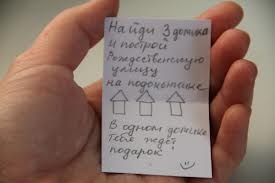 Найди 3 домика
и построй
Рождественскую
улицу
на подоконнике
В одном домике
тебя ждёт
подарок!